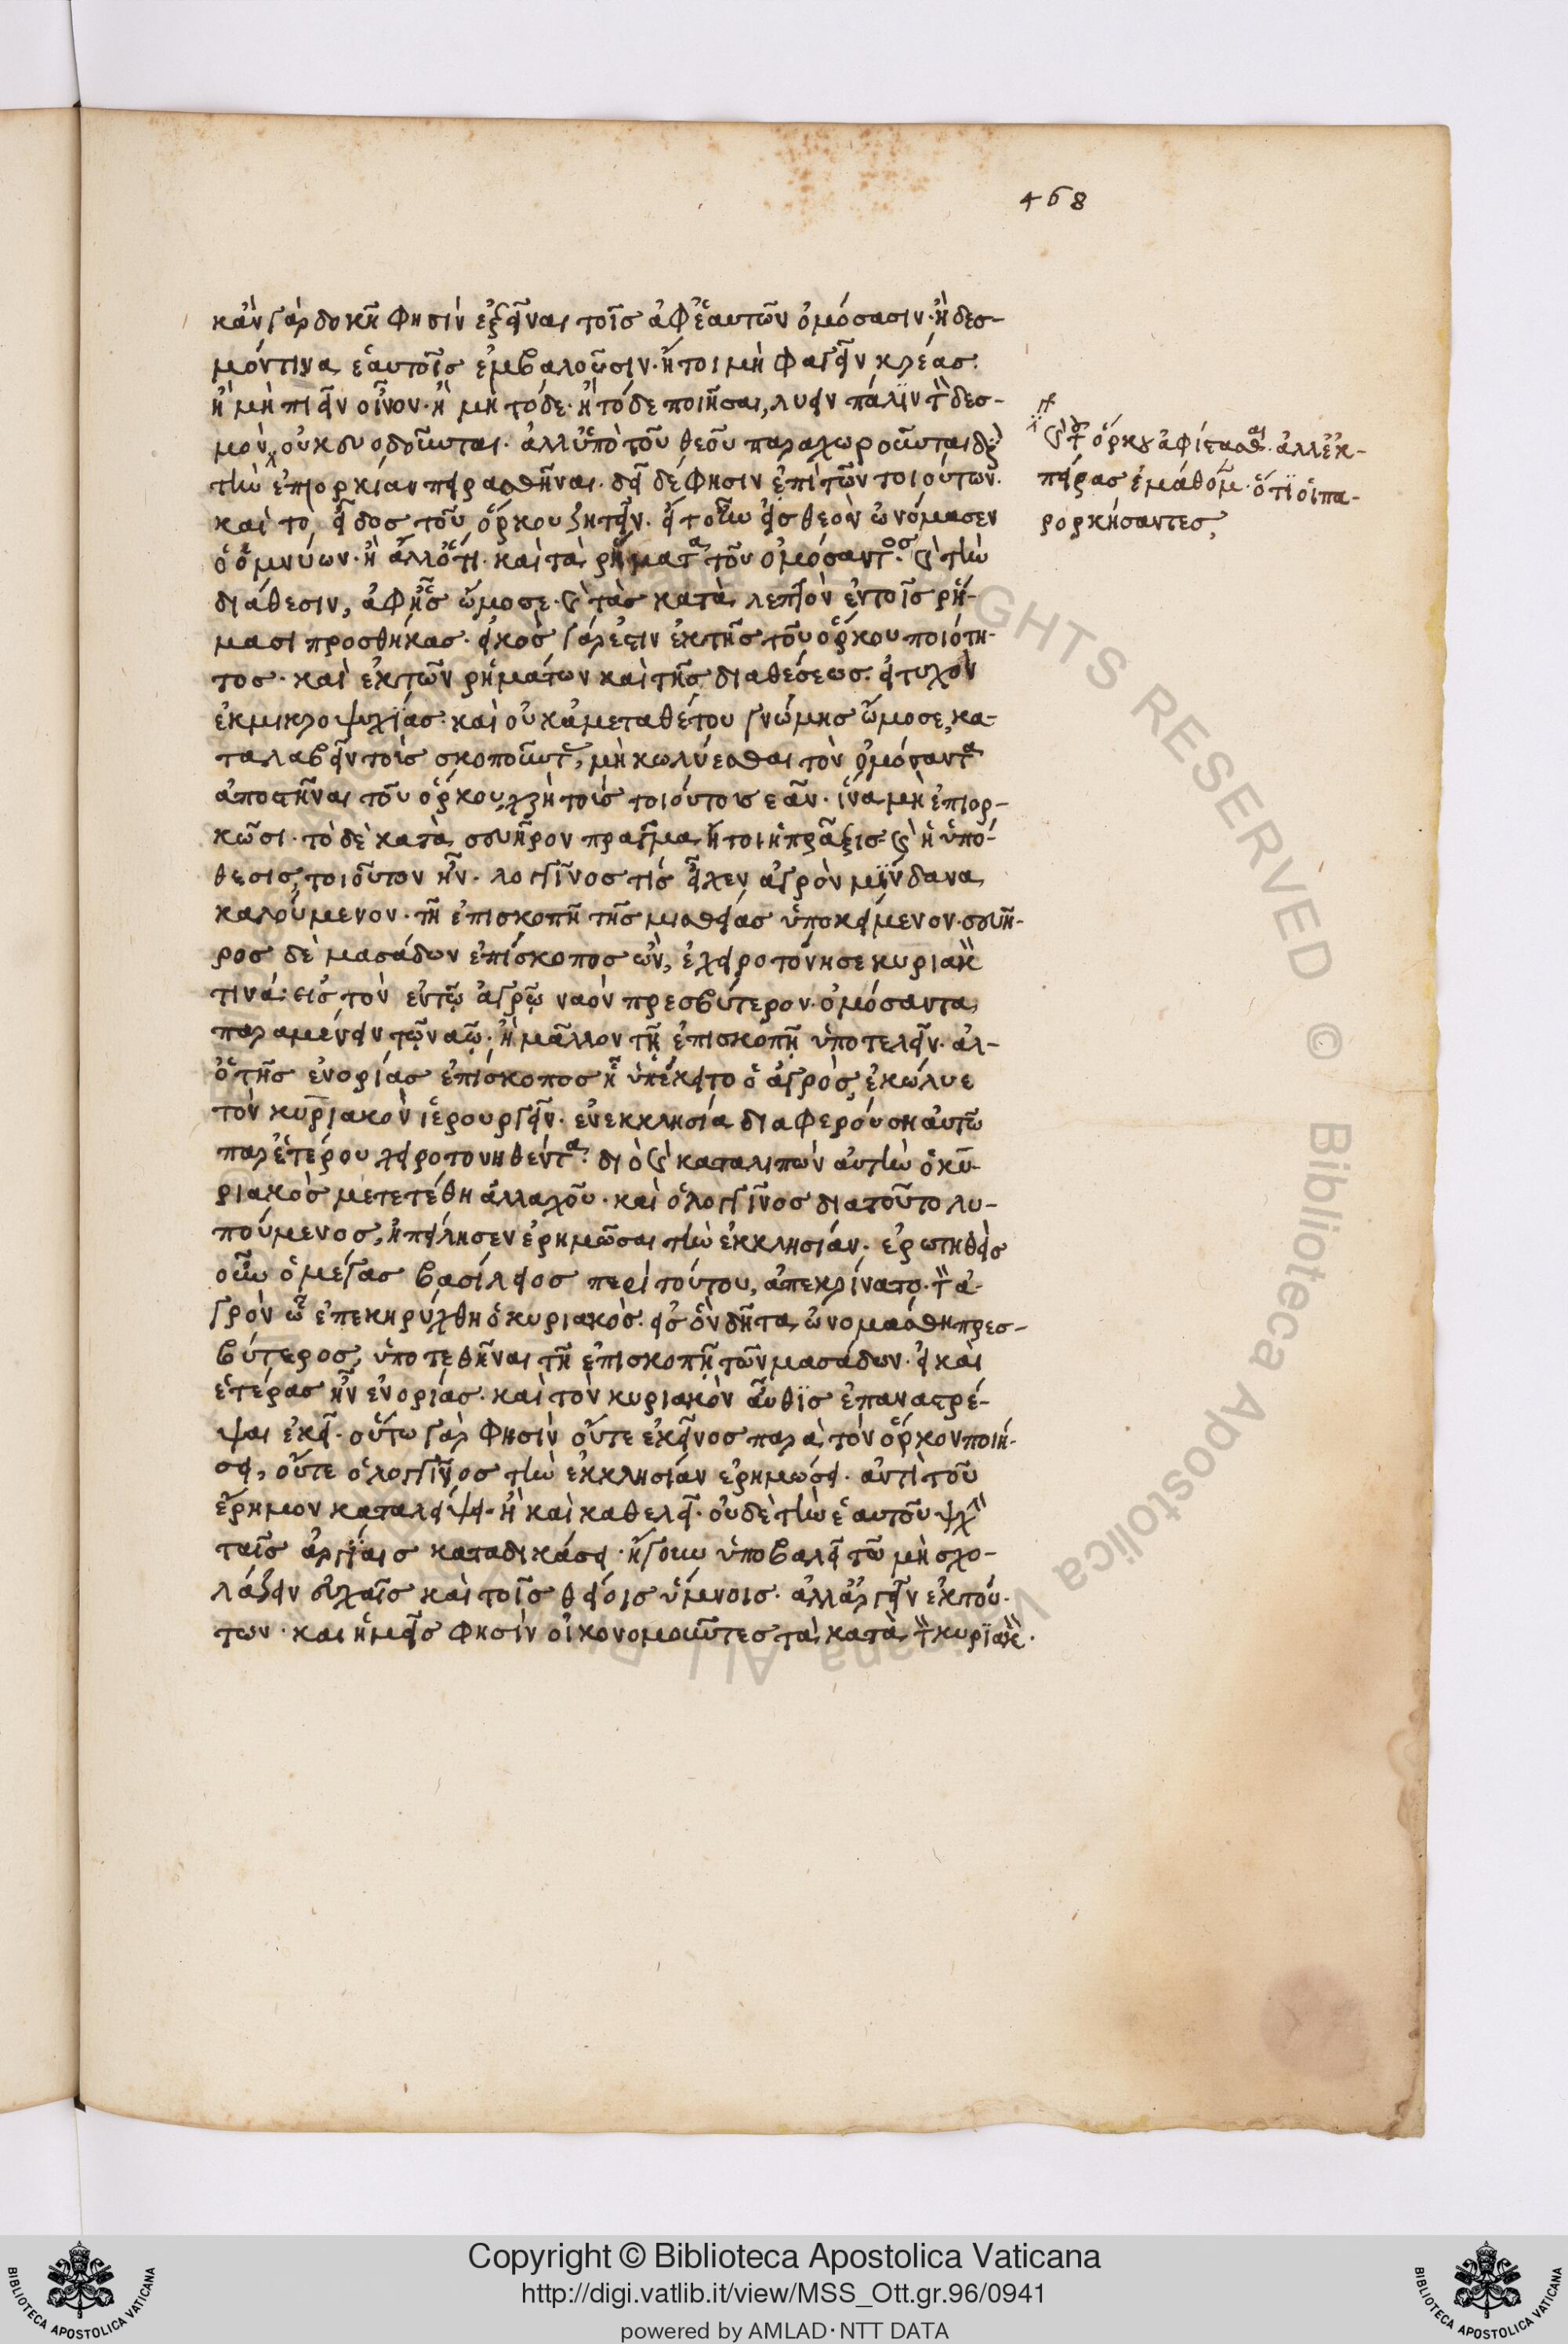 468
κἀν γὰρ δοκῆ φησὶν ἐξεῖναι τοῖς ἀφ' ἑαυτῶν ὀμόσασιν· ἢ δεσ-
μόν τινα ἑαυτοῖς ἐμβαλοῦσιν· ἤτοι μὴ φαγεῖν κρέας·
ἢ μὴ πιεῖν οἶνον· ἢ μὴ τόδε· ἢ τόδε ποιῆσαι, λύειν πάλιν τὸν δεσ-
μὸν, οὐκ εὐοδοῦνται· ἀλλ' ὑπὸ τοῦ θεοῦ παραχωροῦνται διὰ
τὴν ἐπιορκίαν πειρασθῆναι· δεῖ δέ φησιν ἐπὶ τῶν τοιούτων·
καὶ τὸ εἶδος τοῦ ὅρκου ζητεῖν· εἴτ' οὖν εἰς θεὸν ὠνόμασεν
ὁ ὀμνύων· ἢ ἄλλό τι· καὶ τὰ ρήματα τοῦ ὀμόσαντος· καὶ τὴν
διάθεσιν, ἀφ' ἧς ὤμοσε· καὶ τὰς κατὰ λεπτὸν ἐν τοῖς ρή-
μασι προσθήκας· εἰκὸς γάρ ἐστιν ἐκ τῆς τοῦ ὅρκου ποιότη-
τος· καὶ ἐκ τῶν ρημάτων καὶ τῆς διαθέσεως· εἰ τυχὸν
ἐκ μικροψυχίας· καὶ οὐκ ἀμεταθέτου γνώμης ὤμοσε, κα-
ταλαβεῖν τοῖς σκοποῦντας, μὴ κωλύεσθαι τὸν ὀμόσαντα
ἀποστῆναι τοῦ ὅρκου, χρὴ τοῖς τοιούτοις ἐᾶν· ἵνα μὴ ἐπιορ-
κῶσι· τὸ δὲ κατὰ σευῆρον πρᾶγμα ἤτοι ἡ πρᾶξις καὶ ἡ ὑπό-
θεσις, τοιοῦτον ἦν· λογγῖνος τίς εἶχεν ἀγρὸν μίνδανα
καλούμενον· τῆ ἐπισκοπῆ τῆς μισθείας ὑποκείμενον· σευῆ-
ρος δὲ μασάδων ἐπίσκοπος ὢν, ἐχειροτόνησε κυριακὸν
τινά· εἰς τὸν ἐν τῷ ἀγρῷ ναὸν πρεσβύτερον· ὀμόσαντα
παραμένειν τῷ ναῷ· ἢ μᾶλλον τῇ ἐπισκοπῇ ὑποτελεῖν· ἀλ-
ὁ τῆς ἐνορίας ἐπίσκοπος ἧ ὑπέκειτο ὁ ἀγρὸς, ἐκώλυε
τὸν κυριακὸν ἱερουργεῖν· ἐν ἐκκλησία διαφερούση αὐτῶ
παρ' ἑτέρου χειροτονηθέντα· διὸ καὶ καταλιπὼν αὐτὴν ὁ κυ-
ριακὸς μετετέθη ἀλλαχοῦ· καὶ ὁ λογγῖνος διατοῦτο λυ-
πούμενος, ἠπείλησεν ἐρημῶσαι τὴν ἐκκλησίαν· ἐρωτηθεὶς
οὖν ὁ μέγας βασίλειος περὶ τούτου, ἀπεκρίνατο· τὸν ἀ-
γρὸν ὧ ἐπεκηρύχθη ὁ κυριακὸς· εἰς ὃν δῆτα ὠνομάσθη πρεσ-
βύτερος, ὑποτεθῆναι τῆ ἐπισκοπῇ τῶν μασάδων· εἰ καὶ
ἑτέρας ἦν ἐνορίας· καὶ τὸν κυριακὸν αὖθις ἐπαναστρέ-
ψαι ἐκεῖ· οὕτω γὰρ φησὶν οὔτε ἐκεῖνος παρὰ τὸν ὅρκον ποιή-
σει, οὔτε ὁ λογγῖνος τὴν ἐκκλησίαν ἐρημώσει· ἀντὶ τοῦ
ἔρημον καταλείψει· ἢ καὶ καθελεῖ· οὐδὲ τὴν ἑαυτοῦ ψυχὴν
ταῖς ἀργίαις καταδικάσει· ἤγουν ὑποβαλεῖ τῶ μὴ σχο-
λάζειν εὐχαῖς καὶ τοῖς θείοις ὕμνοις· ἀλλ' ἀργεῖν ἐκ τού-
των· καὶ ἡμεῖς φησὶν οἰκονομοῦντες τὰ κατὰ τὸν κυριακὸν·
καὶ τοῦ ὅρκου ἀφίεσθαι· ἀλλ' ἐκ
πείρας ἐμάθομεν· ὅτι οἱ πα-
ρορκήσαντες,
Copyright © Biblioteca Apostolica Vaticana
http://digi.vatlib.it/view/MSS_Ott.gr.96/0941
powered by AMLAD·NTT DATA